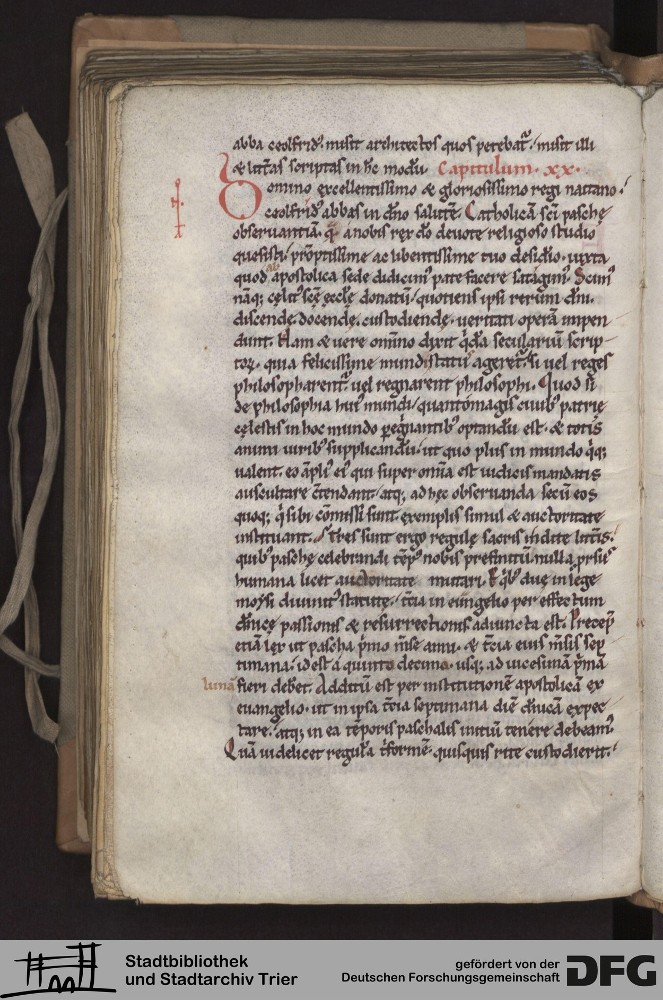 abba ceolfrid᷒. misit architectos quos petebat᷑. misit illi
& litt̄as scriptas in hc̄ modū. Capitulum. xx.
Domino excellentissimo & gloriosissimo regi naitano.
ceolfrid᷒ abbas in dn̄o salutē. Catholicā sc̄i paschę
observantiā. q̄ a nobis rex dō devote religioso studio
quesisti. pro̅ptissime ac libentissime tuo desid̕io. iuxta
quod ab apostolica sede didicim᷒ pate facere satagim᷒. Scim᷒
nāq; cęlit᷒ scę̄ ecclę̄ donatū. quotiens ipsi rerum dn̄i.
discendę. docendę. custodiendę. veritati operā impen
dunt. Nam & vere omīno dixit q̇dā seculariū scrip-
toꝝ. quia felicissime mundi statu᷒ ageret᷑. si vel reges
philosopharent᷑. vel regnarent philosophi. Quod si
de philosophia hui᷒ mundi. quantomagis civib᷒ patrię
cęlestis in hoc mundo ꝑegnantib᷒ optandū est. & totis
animi virib᷒ supplicandū. ut quo plus in mundo q̇q;
valent. eo ampli᷒ ei᷒ qui super om̄ia est iudicis mandatis
auscultare c̄tendant. atq; ad hęc observanda secū eos
quoq; q̇ sibi cōmissi sunt. exemplis simul & auctoritate
instituant. Tres sunt ergo regulę sacris indite litt̄is.
quib᷒ paschę celebrandi tēp᷒ nobis prefinitū. nulla prsus
humana licet auctoritate mutari. E q̇b᷒ duę in lege
moysi divinit᷒ statutę. t̄cia in euu̅ngelio per effectum
dn̄icę passionis & resurrectionis adiuncta est. Precep̄
etiā lex ut pascha p̄mo mn̄se anni. & t̄cia eius mn̄sis sep
timana. id est a quinto decimo. usq; ad vicesimā p̄mā
lunā fieri deb̄et. Additū est per institutionē apostolicā ex
evangelio. ut in ipsa t̄cia septimana diē dn̄icā expec
tare. atq; in ea tēporis paschalis initiū tenere debeam᷒.
Quā videlicet regulā t̄formē. quisquis rite custodierit.
Stadtbibliothek
und Stadtarchiv Trier
gefördert von der
Deutschen Forschungsgemeinschaft
DFG